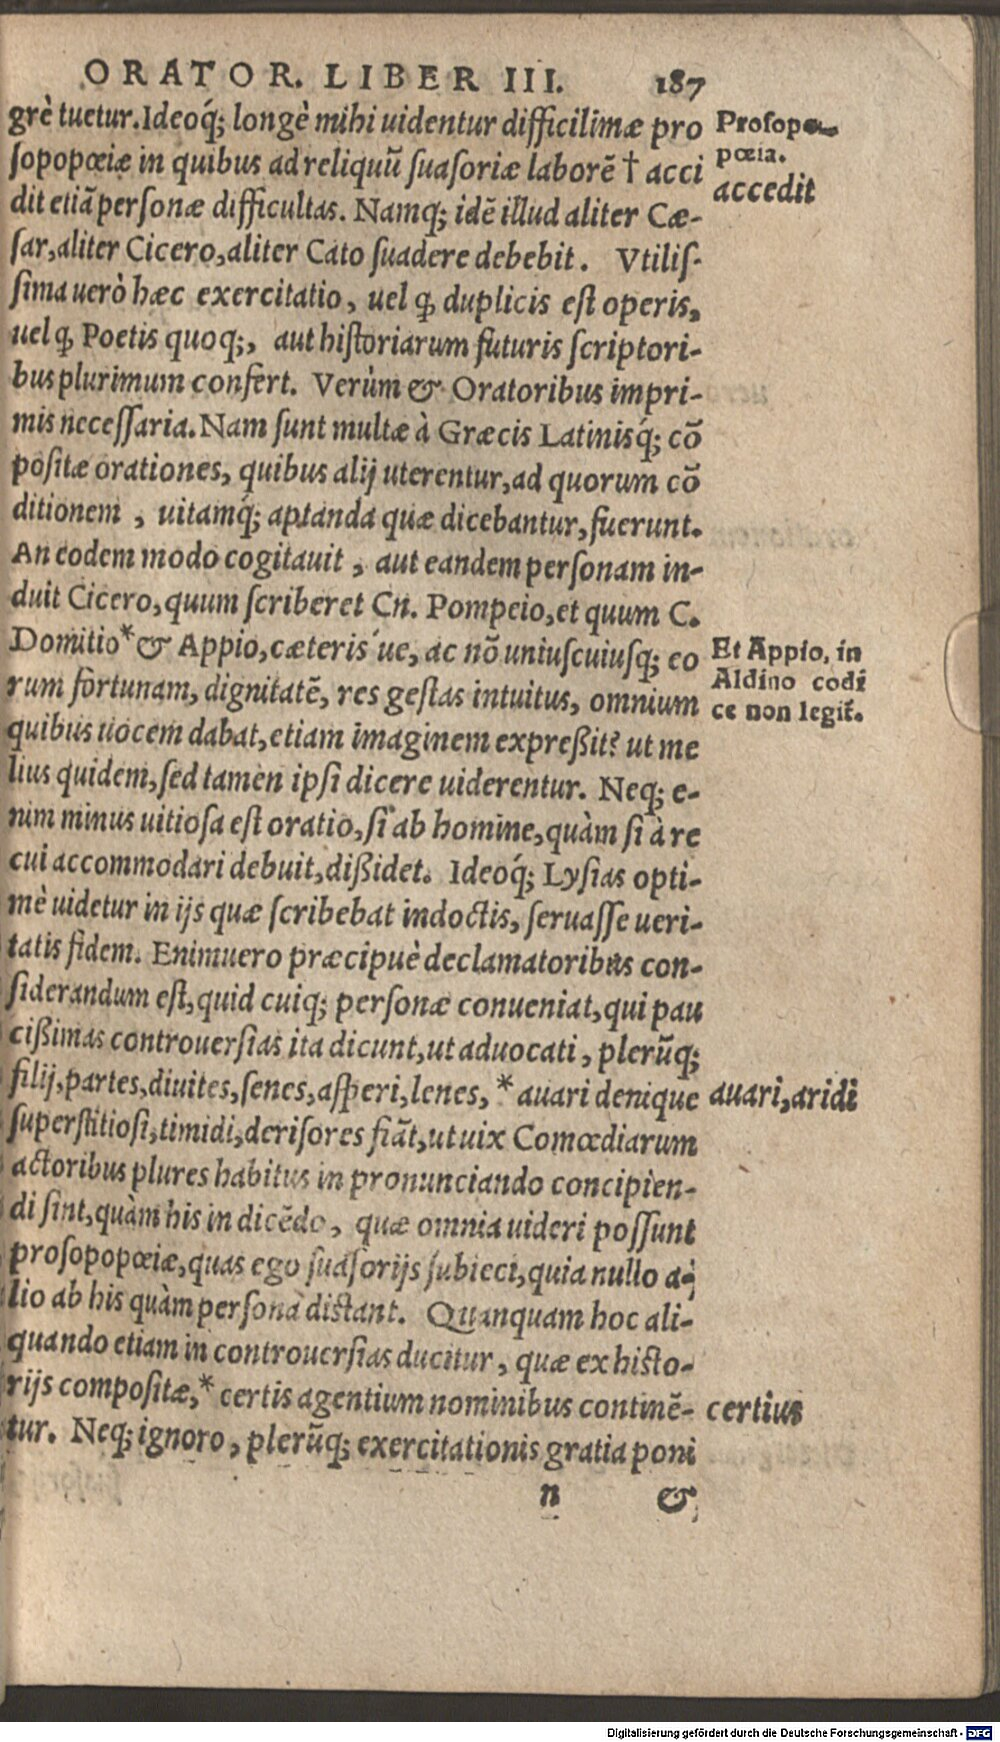 ORATOR. LIBER III. 187
grè tuetur. Ideoq́; longè mihi uidentur difficilimæ pro
sopopœiæ in quibus ad reliquũ suasoriæ laborẽ † acci
dit etiã personæ difficultas. Namq; idẽ illud aliter Cæ-
sar, aliter Cicero, aliter Cato suadere debebit. Vtilis-
sima uerò hæc exercitatio, uel ꝙ duplicis est operis,
uel ꝙ Poetis quoq;, aut historiarum futuris scriptori-
bus plurimum confert. Verùm & Oratoribus impri-
mis necessaria. Nam sunt multæ à Græcis Latinisq́; cõ
positæ orationes, quibus alij uterentur, ad quorum cõ
ditionem, uitamq́; aptanda quæ dicebantur, fuerunt.
An eodem modo cogitauit, aut eandem personam in-
duit Cicero, quum scriberet Cn. Pompeio, et quum C.
Domitio* & Appio, cæteris´ue, ac nõ uniuscuiusq; eo
rum fortunam, dignitatẽ, res gestas intuitus, omnium
quibus uocem dabat, etiam imaginem expreßit? ut me
lius quidem, sed tamen ipsi dicere uiderentur. Neq; e-
nim minus uitiosa est oratio, si ab homine, quàm si à re
cui accommodari debuit, dißidet. Ideoq́; Lysias opti-
mè uidetur in ijs quæ scribebat indoctis, seruasse ueri-
tatis fidem. Enimuero præcipuè declamatoribus con-
siderandum est, quid cuiq; personæ conueniat, qui pau
cißimas controuersias ita dicunt, ut aduocati, plerũq;
filij, partes, diuites, senes, asperi, lenes, * auari denique
superstitiosi, timidi, derisores fiãt, ut uix Comœdiarum
actoribus plures habitus in pronunciando concipien-
di sint, quàm his in dicẽdo, quæ omnia uideri possunt
prosopopœiæ, quas ego suasorijs subieci, quia nullo a-
lio ab his quàm persona distant. Quanquam hoc ali-
quando etiam in controuersias ducitur, quæ ex histo-
rijs compositæ, * certis agentium nominibus continẽ-
tur. Neq; ignoro, plerũq; exercitationis gratia poni
n &
Prosopo-
pœia.
accedit
Et Appio, in
Aldino codi
ce non legit̃.
auari, aridi
certius
Digitalisierung gefördert durch die Deutsche Forschungsgemeinschaft - DFG